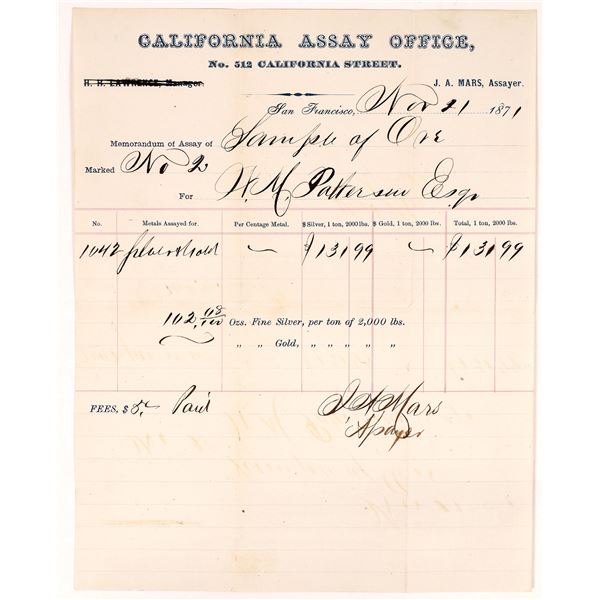 CALIFORNIA ASSAY OFFICE,
No. 512 CALIFORNIA STREET.
H. H. LAWRENCE, Manager. J. A. MARS, Assayer.
San Francisco, Nov 21 1871
Memorandum of Assay of Sample of Ore
Marked No 2
For W. M. Patterson Esqr
No. Metals Assayed for. Per Centage Metal. $ Silver, 1 ton, 2000 lbs. $ Gold, 1 ton, 2000 lbs. Total, 1 ton, 2000 lbs.
1042 Silver & Gold — $131 99 — $131 99
102, 08/100 Ozs. Fine Silver, per ton of 2,000 lbs.
„ „ Gold, „ „ „ „ „
FEES, $ 5,— Paid J A Mars
Assayer